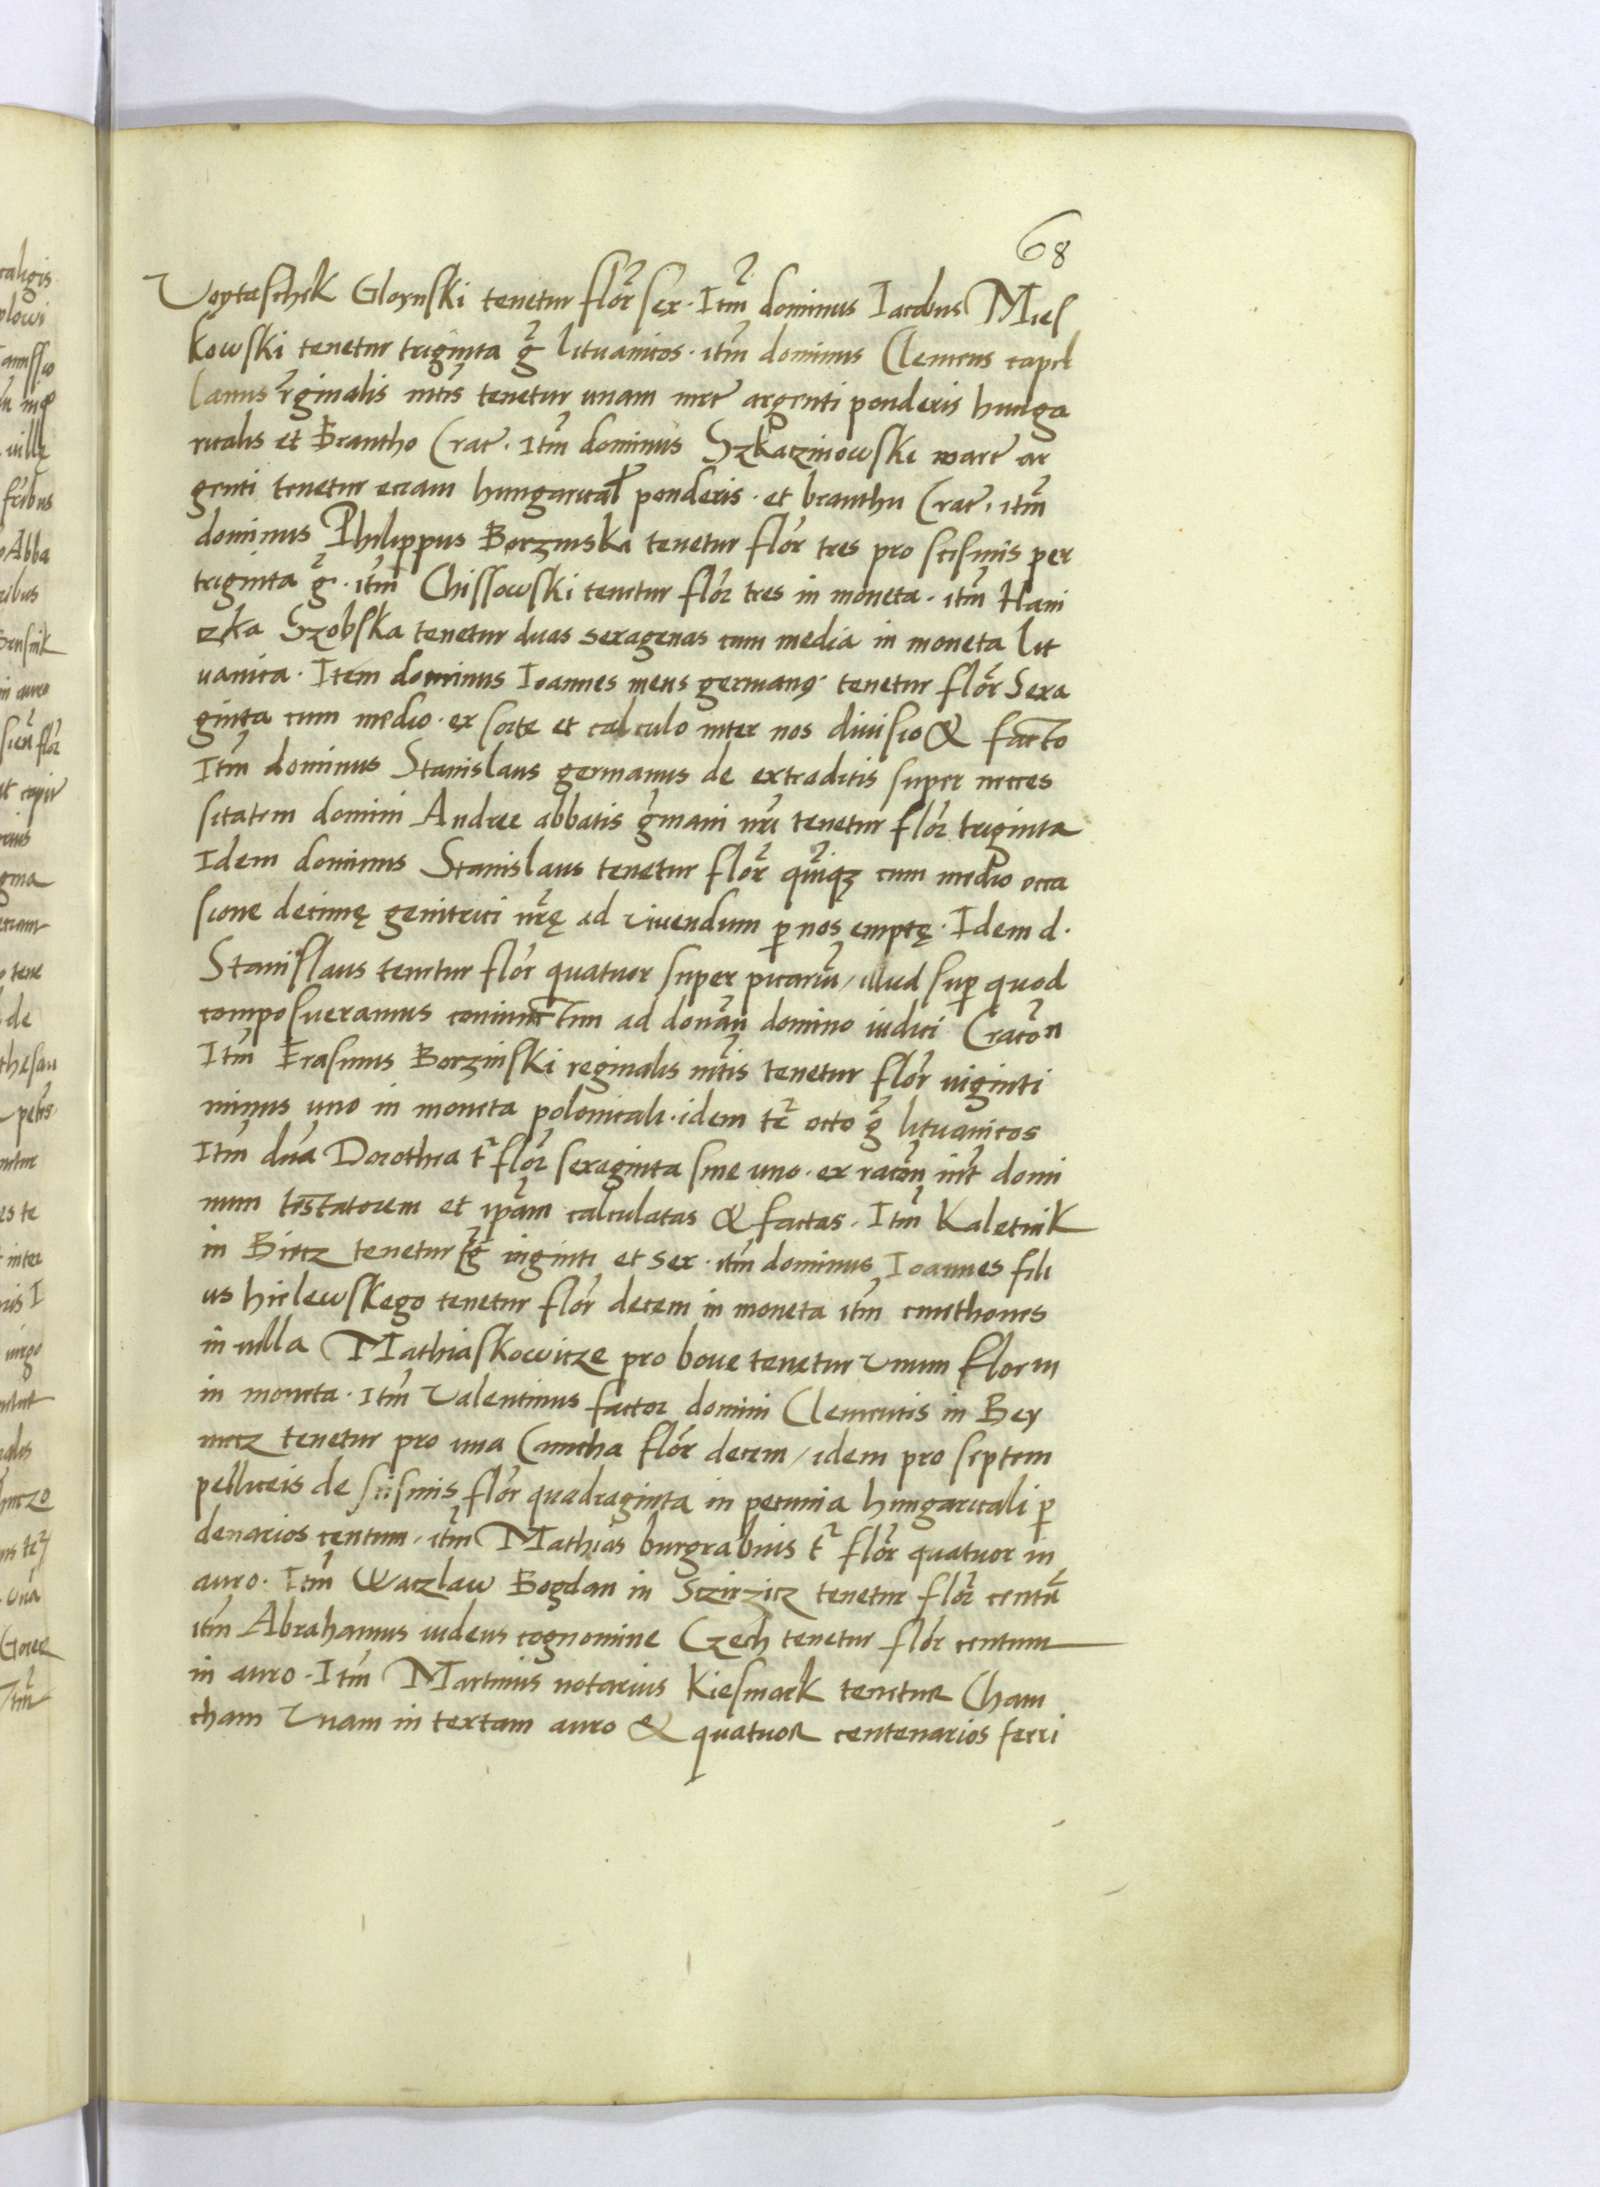 68
Voytaschek Gloynski tenetur flor̃ sex. Itm̃ dominus Iacobus Mies
kowski tenetur triginta g̃ lituanicos. itm̃ dominus Clemens capel
lanus r̃ginalis mtis̃ tenetur unam mrc argenti ponderis hunga
ricalis et Brantho Crac. Itm̃ dominus Szkaczinowski marc ar
genti tenetur eciam hungarical ponderis. et branthu Crac. itm̃
dominus Philippus Borzinski tenetur flor̃ tres pro scismis per
triginta g̃. itm̃ Chissowski tenetur flor̃ tres in moneta. itm̃ Hani
czka Szobska tenetur duas sexagenas cum media in moneta lit
uanica. Item dominus Ioannes meus german9 tenetur flor̃ Sexa
ginta cum medio. ex sorte et calculo inter nos diuisio & facto
Itm̃ dominus Stanislaus germanus de extraditis super neces
sitatem domini Andree abbatis g̃mani nr̃i tenetur flor̃ triginta
Idem dominus Stanislaus tenetur flor̃ quĩqz cum medio occa
sione decimę genitrici nr̃ę ad viuendum p nos emptę. Idem d.
Stanislaus tenetur flor̃ quatuor super picariũ, illud sup quod
composueramus coniunctim ad donãn domino iudici Cracõn
Itm̃ Erasmus Borzinski reginalis mtis̃ tenetur flor̃ uiginti
minus uno in moneta polonicali. idem tc̃ octo g̃ lituanicos
Itm̃ dña Dorothea t̃ flor̃ sexaginta sine uno. ex racõn int̃ domi
num testatorem et ipãm calculatas & factas. Itm̃ Kaletnik
in Biecz tenetur g̃ uiginti et sex. itm̃ dominus Ioannes fili
us hirlewskego tenetur flor̃ decem in moneta itm̃ cmethones
in uilla Mathiaskowicze pro boue tenetur Unum flor in
in moneta. Itm̃ Valentinus factor domini Clementis in Bey
necz tenetur pro una Camcha flor̃ decem, idem pro septem
pelliceis de scismis flor̃ quadraginta in pecunia hungaricali p
denarios centum. itm̃ Mathias burgrabius t̃ flor̃ quatuor in
auro. Itm̃ Waczlaw Bogdan in Sczirzicz tenetur flor̃ centũ
itm̃ Abrahamus iudeus cognomine Czech tenetur flor̃ centum
in auro. Itm̃ Martinus notarius Kiesmark tenetur Cham
cham Unam in textam auro & quatuor centenarios ferri